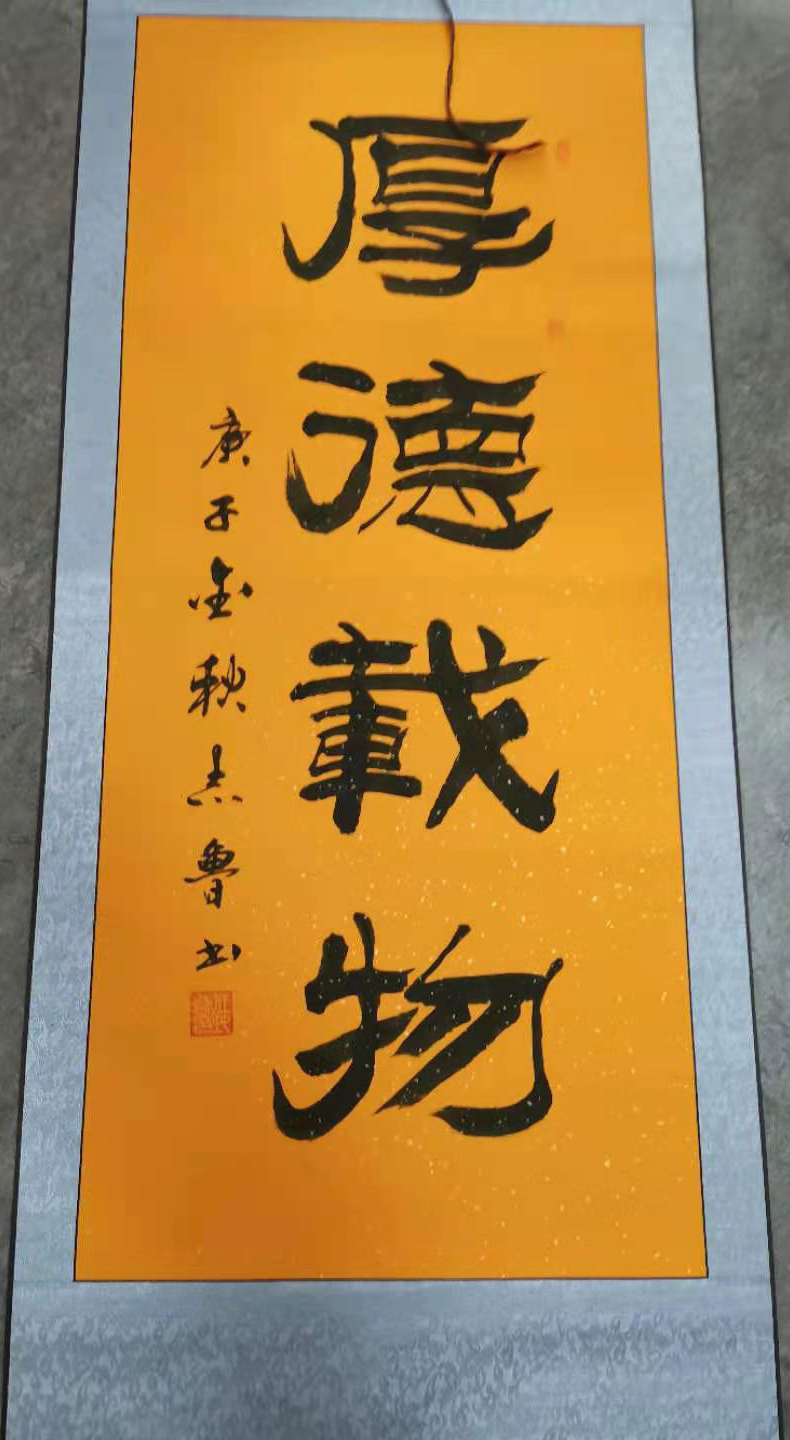 厚德載物
庚子金秋志魯书